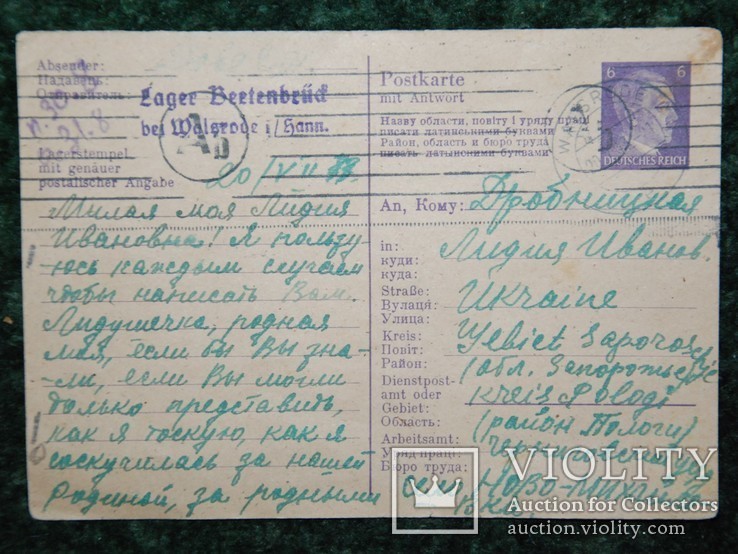 Absender:
Надавець:
Отправитель:
п. 30
21.8
Lager Beetenbrück
bei Walsrode i/Hann.
A
D
Lagerstempel
mit genauer
postalischer Angabe
20/VII 43
Милая моя Лидия
Ивановна! Я пользу
юсь каждым случаем
чтобы написать Вам.
Лидушечка, родная
моя, если бы Вы зна-
ли, если Вы могли
только представить,
как я тоскую, как я
соскучилась за нашей
Родиной, за родными
Postkarte
mit Antwort
Назву области, повіту і уряду праці
писати латинськими буквами
Район, область и бюро труда
писать латинскими буквами
6 6
DEUTSCHES REICH
WALSRODE
An, Кому: Дробницкая
in:
куди:
куда:
Лидия Иванов.
Straße:
Вулиця:
Улица:
Ukraine
Kreis:
Повіт:
Район:
Gebiet Saporoz
(обл. Запорожье
Dienstpost-
amt oder
Gebiet:
Область:
Kreis Pologi
(район Пологи)
Arbeitsamt:
Уряд праці:
Бюро труда:
село
VIOLITY
Auction for Collectors
auction.violity.com